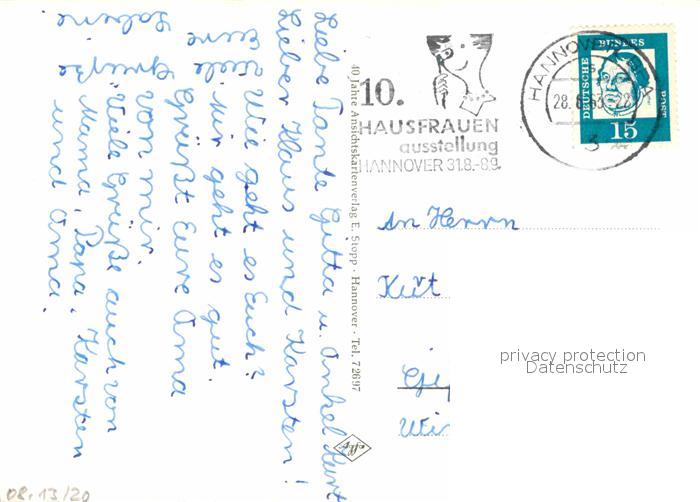 Liebe Tante Gitta u. Onkel Kurt
Lieber Klaus und Karsten!
Wie geht es Euch?
Mir geht es gut.
Grüßt Eure Oma
von mir.
Viele Grüße auch von
Mama, Papa, Karsten
und Oma.
Viele Grüße
Eure
Sabine
40 Jahre Ansichtskartenverlag E. Stopp · Hannover · Tel. 72697
10.
HAUSFRAUEN
ausstellung
HANNOVER 31.8.-8.9.
HANNOVER
28.
63
22
3
DEUTSCHE
BUNDES
POST
15
An Herrn
Kurt
privacy protection
Datenschutz
08.13/20